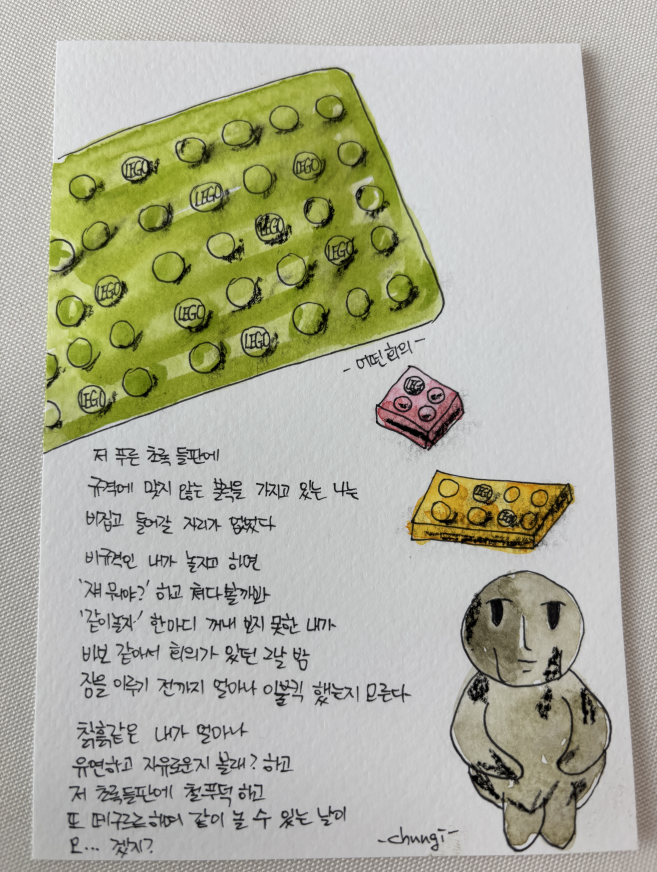 LEGO
LEGO
LEGO
LEGO
LEGO
LEGO
LEGO
LEGO
LEGO
- 어떤 회의 -
LEGO
LEGO
LEGO
저 푸른 초록 들판에
규격에 맞지 않는 블럭을 가지고 있는 나는
비집고 들어갈 자리가 없었다
비규칙인 내가 놀자고 하면
'쟤 뭐야?' 하고 쳐다볼까봐
'같이놀자' 한마디 꺼내 보지 못한 내가
바보 같아서 회의가 있던 그날 밤
잠을 이루기 전까지 얼마나 이불킥 했는지 모른다
칡흙같은 내가 얼마나
유연하고 자유로운지 볼래? 하고
저 초록들판에 철푸덕 하고
또 떼구르르해며 같이 놀 수 있는 날이
오... 겠지?
-chungi-